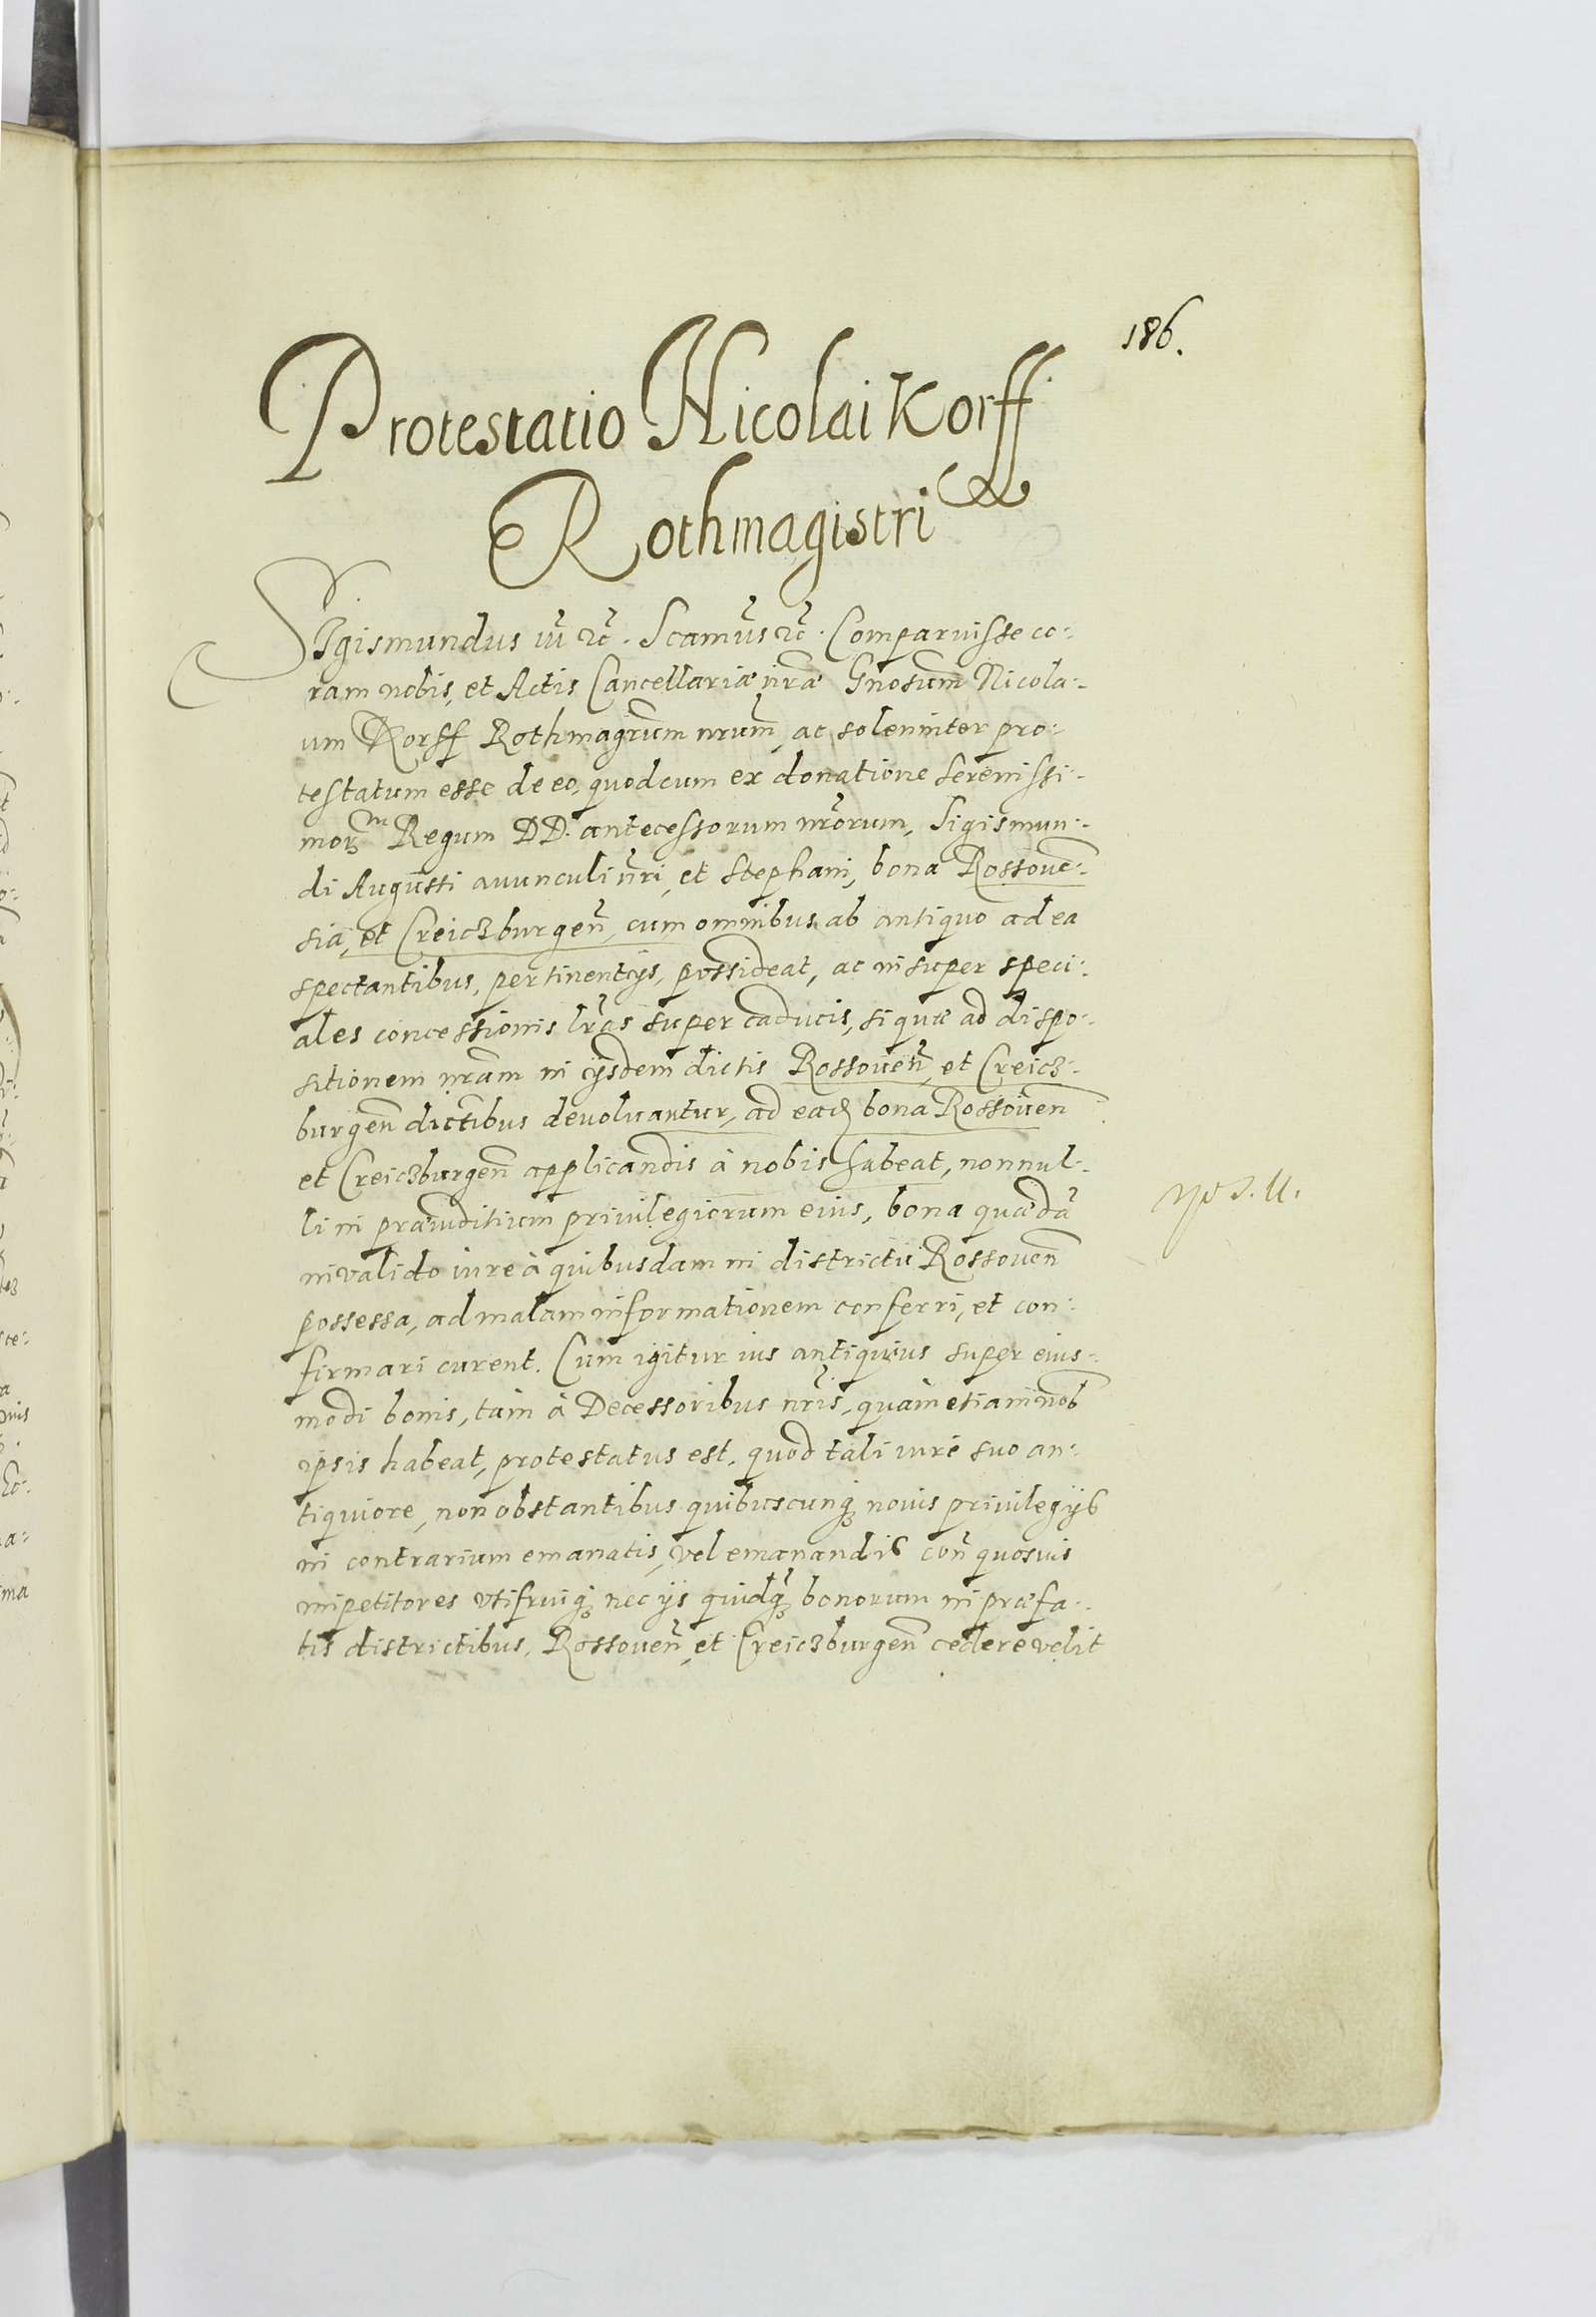 186.
Protestatio Nicolai Korff
Rothmagistri
SIgismundus iii̅ ꝛc̃. Scamũs ꝛc̃. Comparuisse co:
ram nobis, et Actis Cancellariæ nr̃æ Gnosum̃ Nicola:
um Korff Rothmagrũm nrum̃, ac solenniter pro:
testatum esse de eo, quod cum ex donatione Serenissi:
morꝝ Regum DD. antecessorum nr̃orum, Sigismun:
di Augusti auunculi nr̃i, et Stephani, bona Rossoue:
sia, et Creiczburgen̄, cum omnibus ab antiquo ad ea
spectantibus, pertinentijs, possideat, ac insuper speci:
ales concessionis lr̃as super caducis, si quæ ad dispo:
sitionem nr̃am in ijsdem dictis Rossouen̄, et Creicz:
burgen̄ dictibus deuoluantur, ad eadꝫ bona Rossouen̄
et Creiczburgen̄ applicandis à nobis habeat, nonnul:
li in præiuditium priuilegiorum eius, bona quædã
invalido iure à quibusdam in districtu Rossouen̄
possessa, ad malam informationem conferri, et con:
firmari curent. Cum igitur ius antiquius super eius:
modi bonis, tam à Decessoribus nr̃is, quàm etiam nob̄
ipsis habeat, protestatus est, quod tali iure suo an:
tiquiore, non obstantibus quibuscunqꝫ nouis priuilegijs
in contrarium emanatis, vel emanandis con̄ quosuis
impetitores vti fruiqꝫ nec ijs quidqꝫ bonorum in præfa:
tis districtibus, Rossouen̄, et Creiczburgen̄ cedere velit